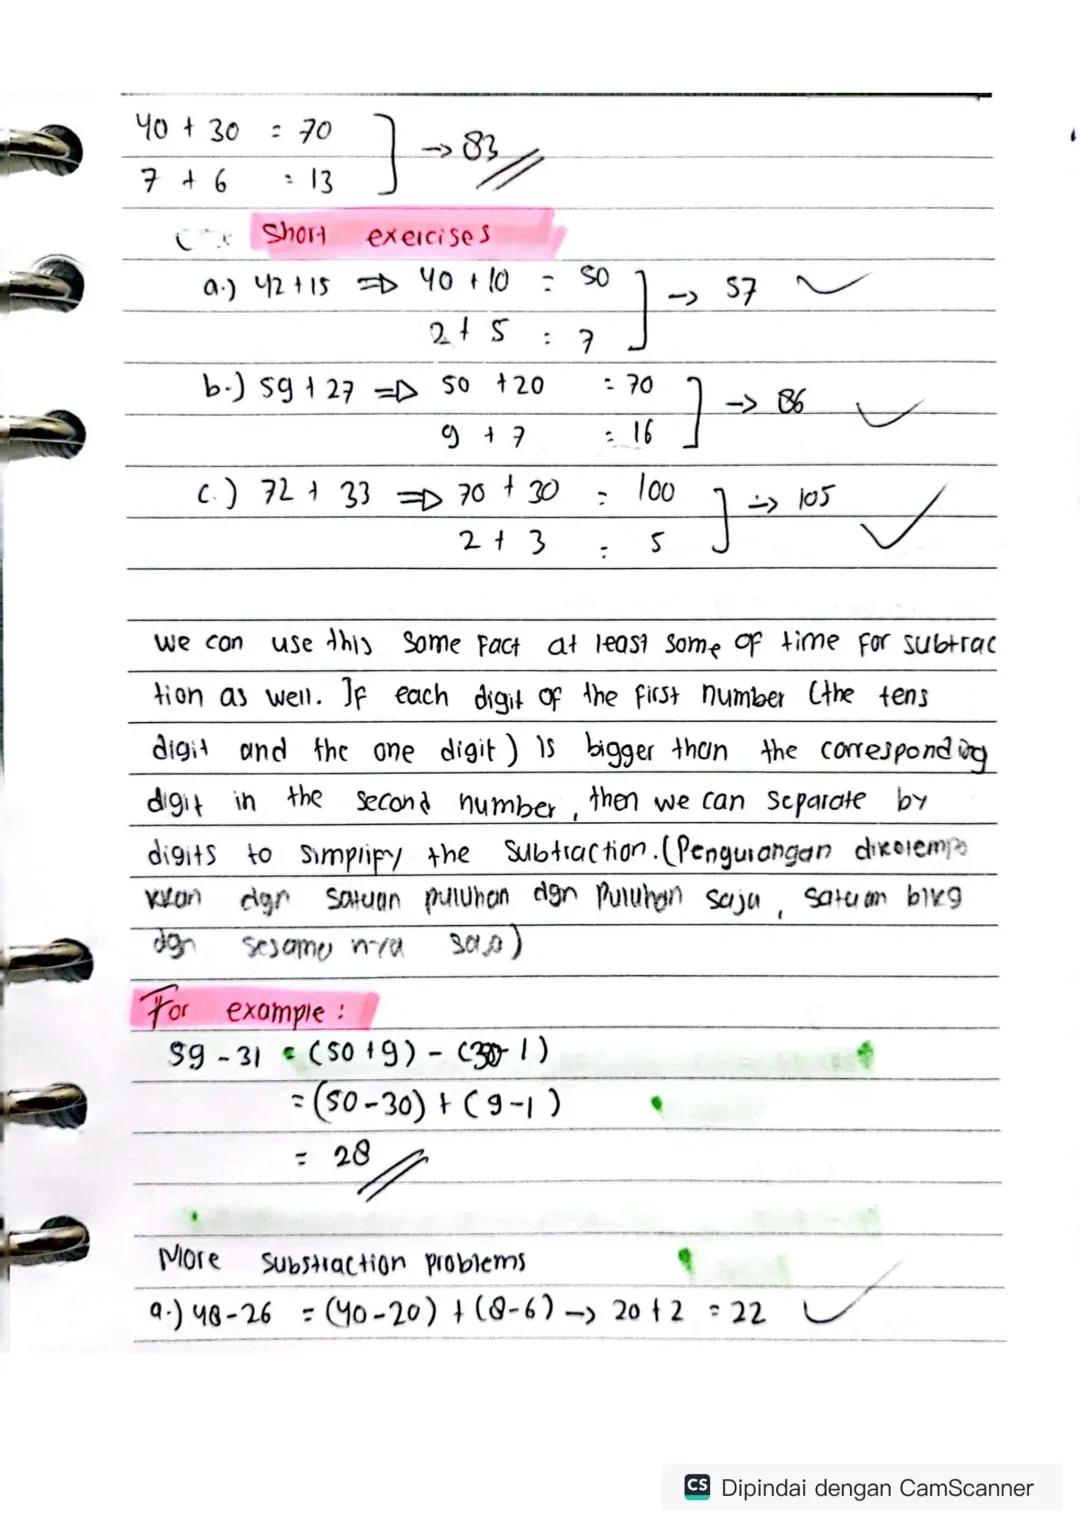 40 + 30 = 70
→ 83
7 + 6 = 13
Short exercises
a.) 42 + 15 ⇒ 40 + 10 = 50
→ 57
2 + 5 = 7
b.) 59 + 27 ⇒ 50 + 20 = 70
→ 86
9 + 7 = 16
c.) 72 + 33 ⇒ 70 + 30 = 100
→ 105
2 + 3 = 5
we can use this same fact at least some of time for subtrac
tion as well. If each digit of the first number (the tens
digit and the one digit) is bigger than the corresponding
digit in the second number, then we can separate by
digits to simplify the subtraction. (Pengurangan
dgn satuan puluhan dgn puluhan saja, satuan
dgn
For example:
59 - 31 = (50 + 9) - (30 - 1)
= (50 - 30) + (9 - 1)
= 28
More Substraction problems
a.) 48 - 26 = (40 - 20) + (8 - 6) → 20 + 2 = 22
CS Dipindai dengan CamScanner